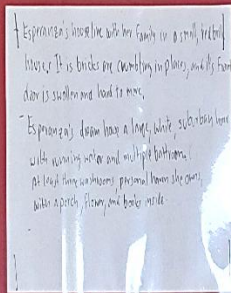 Esperanza's house live with her family in a small, red brick
house. It is bricks are crumbling in places, and it's front
door is swollen and hard to move.
Esperanza's dream have a large, white, suburban house
with running water and multiple bathroom.
At least three washrooms, personal haven she owns,
with a porch, flower, and books inside.